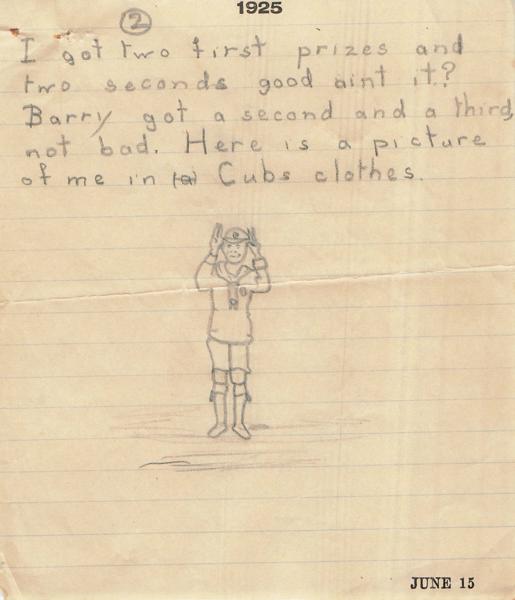 1925
2
I got two first prizes and
two seconds good aint it?
Barry got a second and a third
not bad. Here is a picture
of me in (a) Cubs clothes.
JUNE 15